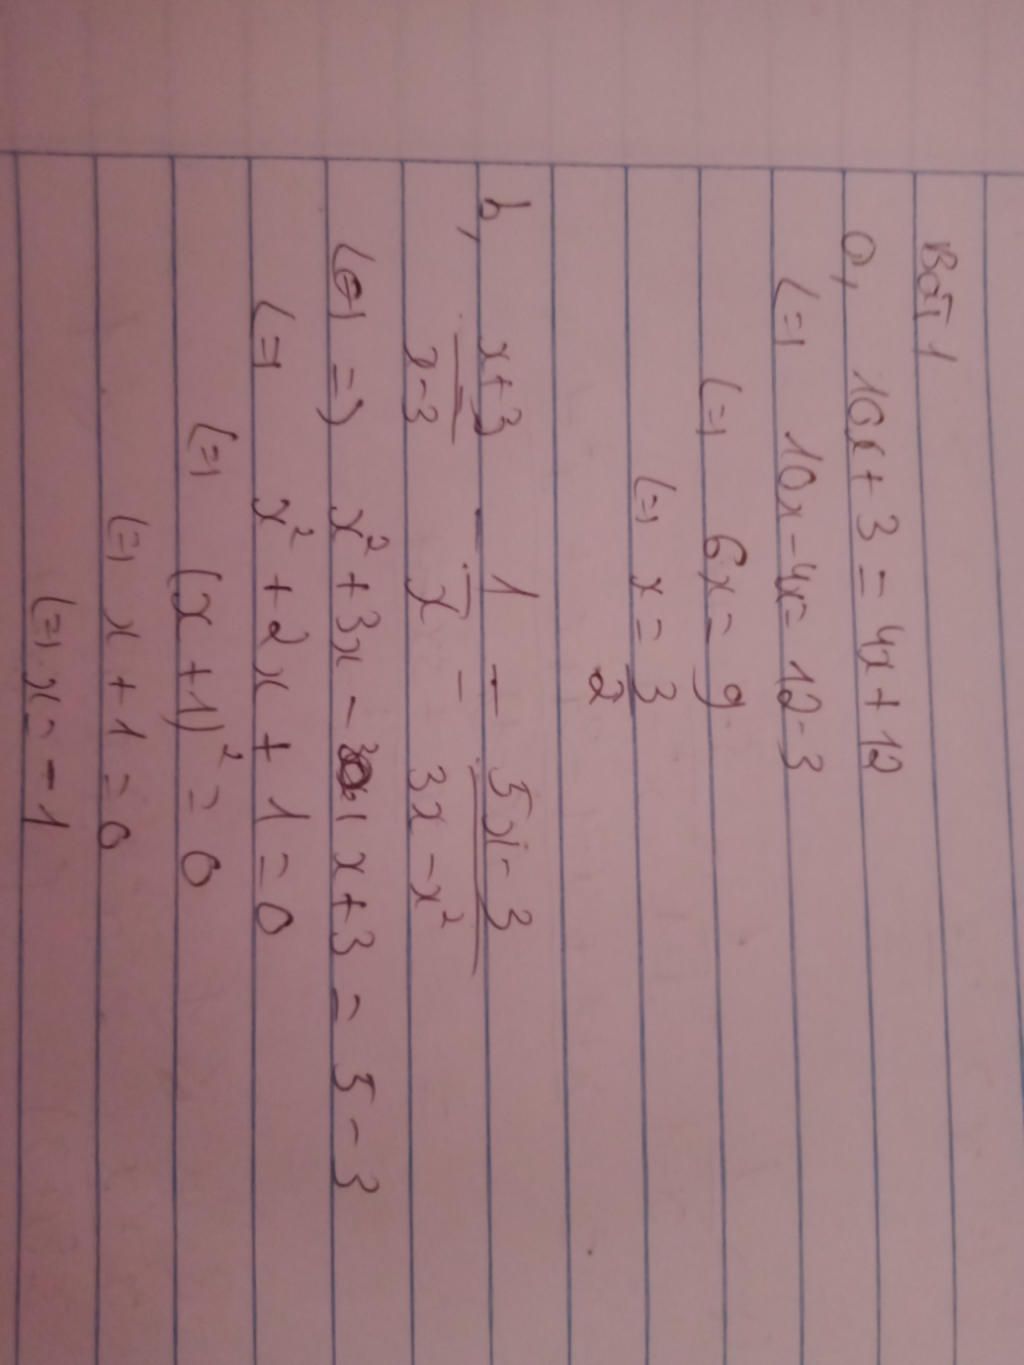 Bài 1
a, 10x + 3 = 4x + 12
(=) 10x - 4x = 12 - 3
(=) 6x = 9
(=) x = 3/2
b, (x+3)/(x-3) - 1/x = (5x-3)/(3x-x²)
=) x² + 3x - x + 3 = 5 - 3
(=) x² + 2x + 1 = 0
(=) (x + 1)² = 0
(=) x + 1 = 0
(=) x = -1